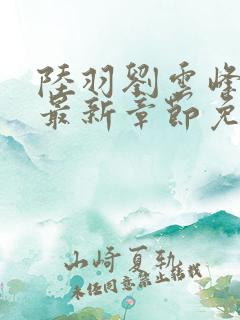 陸羽劉雲峰
最新章節免
山崎夏軌
未经同意禁止转载